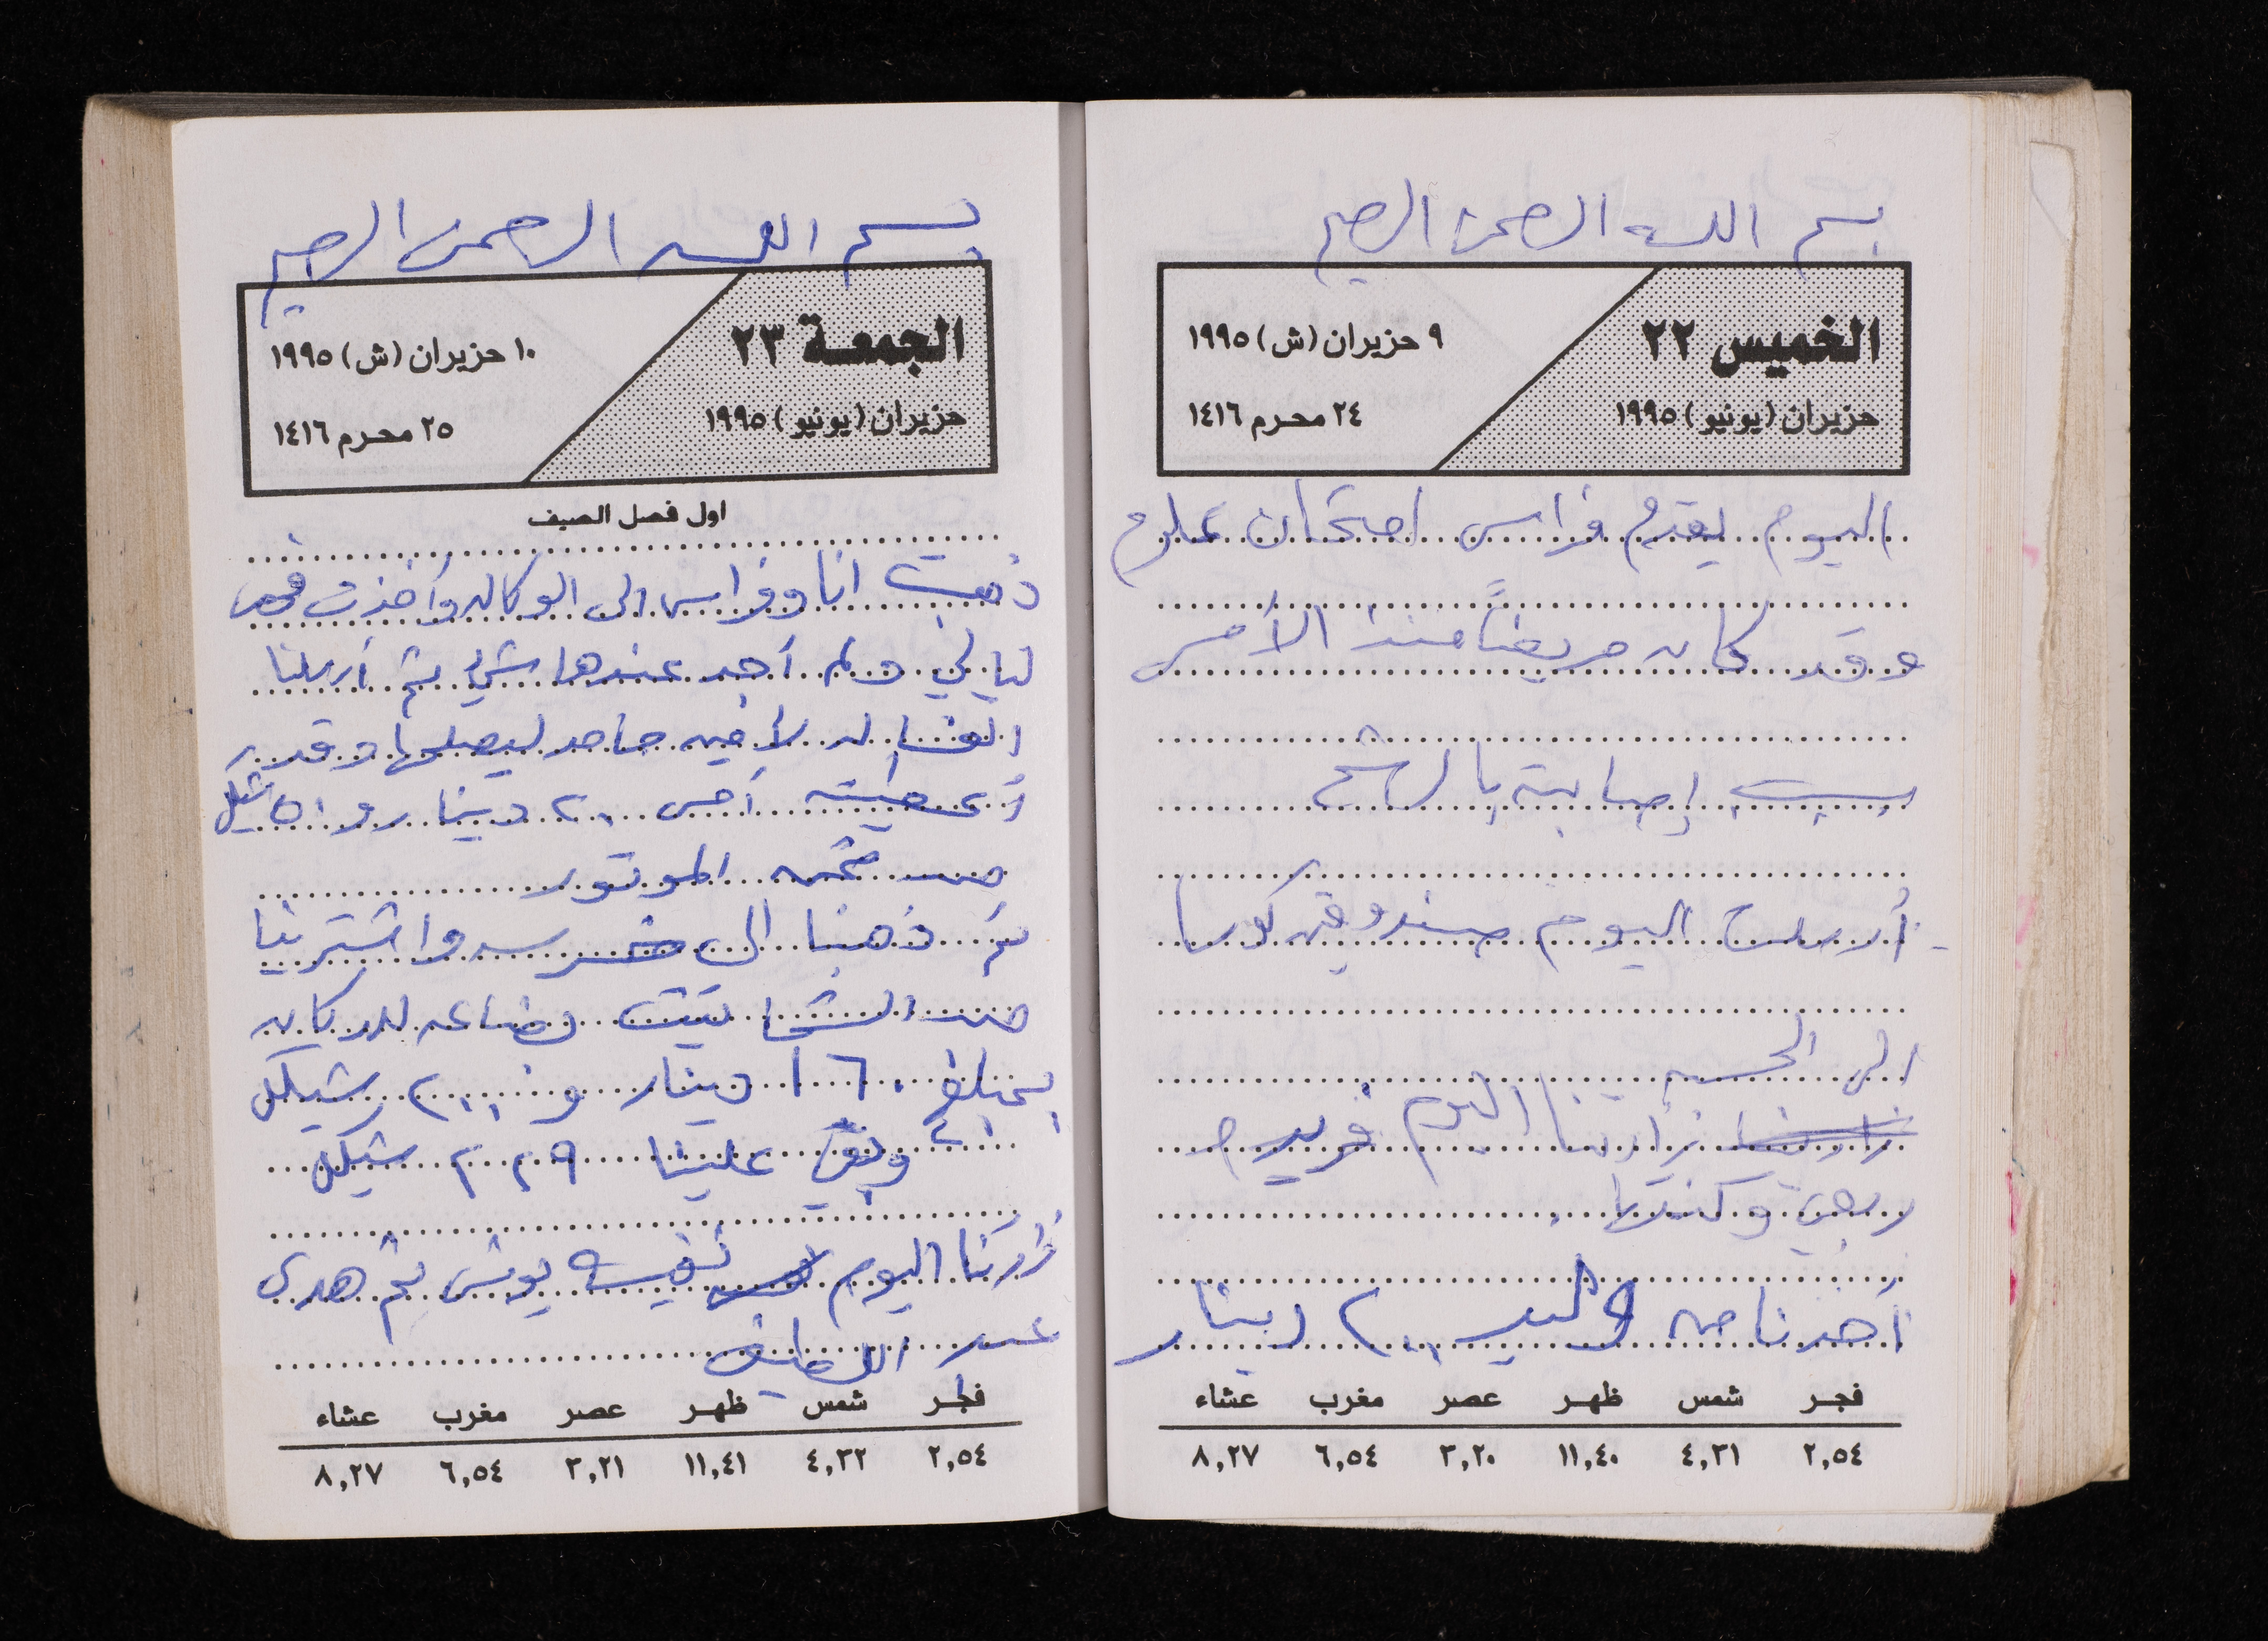 بسم الله الرحمن الرحيم
الخميس ٢٢
٩ حزيران (ش) ١٩٩٥
حزيران (يونيو) ١٩٩٥
٢٤ محرم ١٤١٦
اليوم يقدم فراس امتحان علوم
وقد كان مريضاً منذ الأمس
بسبب إصابته بالرشح
أرسلت اليوم صندوق كوسا
الى الحسبه
زارتنا اليوم فريد م
ربحي وكنتها
أخذنا من وليد ٢٠٠ دينار
فجـر شمس ظهـر عصـر مغرب عشاء
٢,٥٤ ٤,٣١ ١١,٤٠ ٣,٢٠ ٦,٥٤ ٨,٢٧
بسم الله الرحمن الرحيم
الجمعـة ٢٣
١٠ حزيران (ش) ١٩٩٥
حزيران (يونيو) ١٩٩٥
٢٥ محرم ١٤١٦
اول فصل الصيف
ذهبت انا وفراس الى الوكاله وأخذت
ليالي ولم أجد عندها شيء ثم أرسلنا
الغساله لأخيه حامد ليصلحها وقد
أعطيته أمس ٢٠ دينار و ٥٠ شيكل
من ثمن الموتور
ثم ذهبنا الى واشترينا
من بضاعه للدكان
بمبلغ ١٦٠ دينار و ٢٠٠ شيكل
وبقي علينا ٢٢٩ شيكل
زارنا اليوم نفيسه يونس ثم هدى
عبد اللطيف
فجـر شمس ظهـر عصـر مغرب عشاء
٢,٥٤ ٤,٣٢ ١١,٤١ ٣,٢١ ٦,٥٤ ٨,٢٧